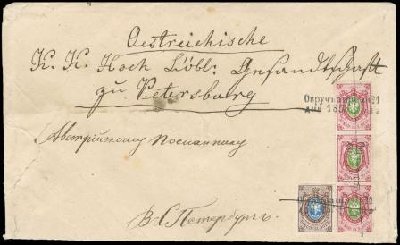 Oestreichische
K. K. Hoch Löbl: Gesandtschaft
zu Petersburg
Австрійскому Посланнику
В С. Петербурге.